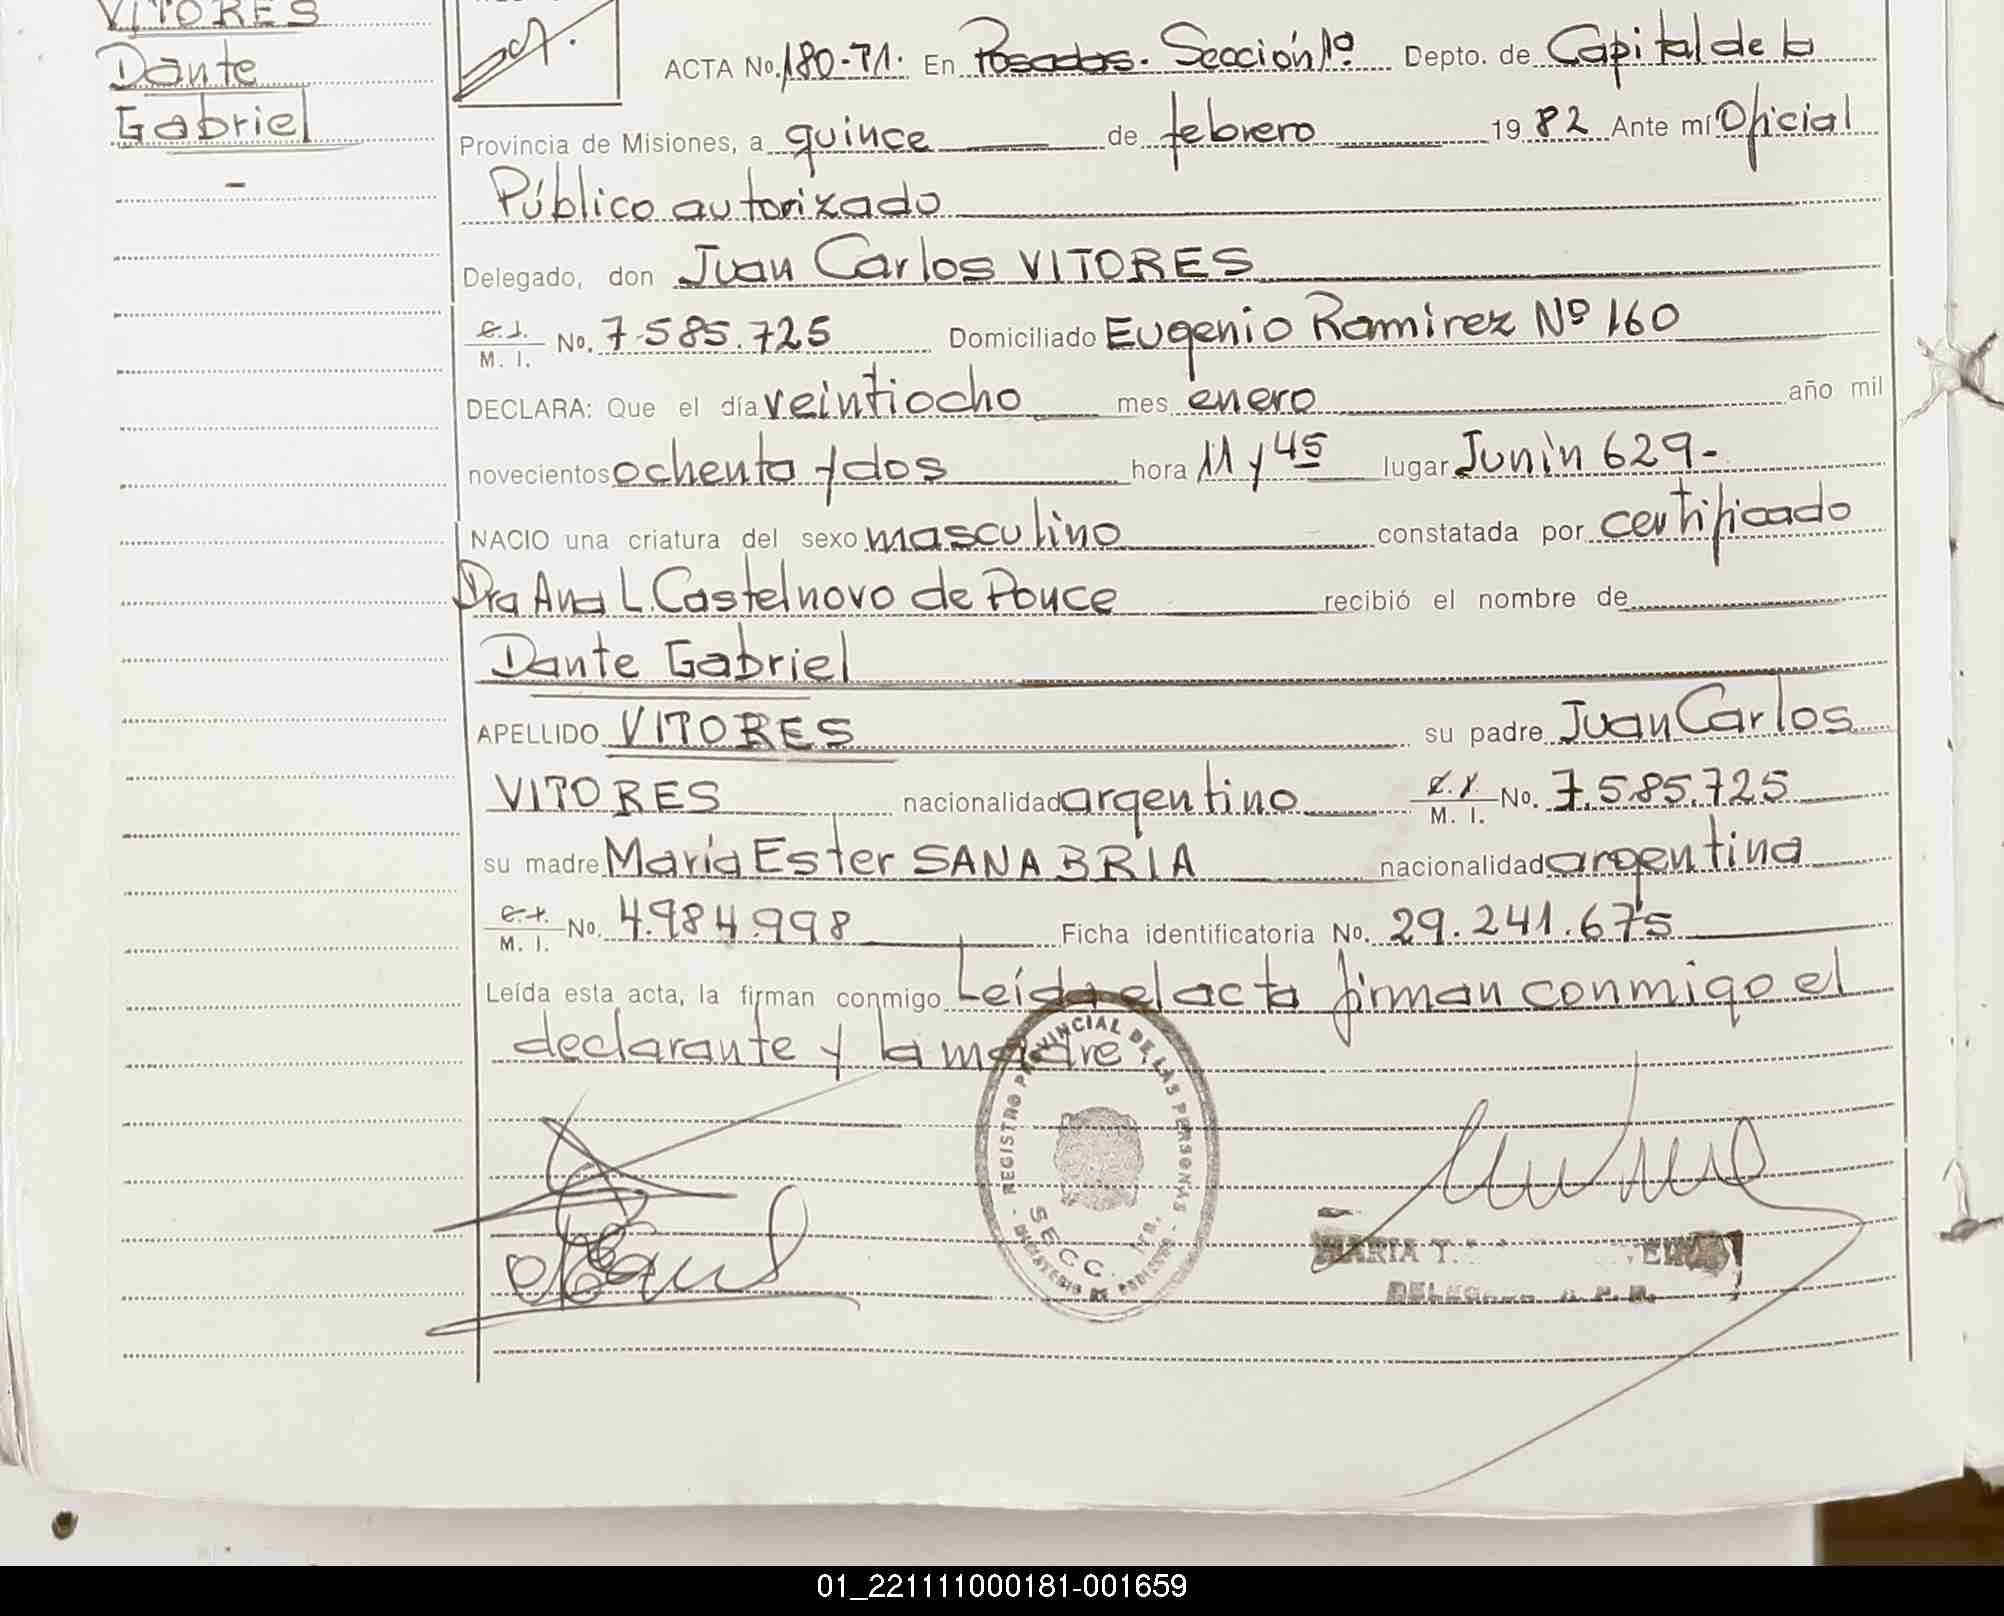 VITORES
Dante
Gabriel
-
ACTA No. 180-T1. En Posadas. Sección 1ª Depto. de Capital de la
Provincia de Misiones, a quince de febrero 1982 Ante mí Oficial
Público autorizado
Delegado, don Juan Carlos VITORES
C.I. M. I. No. 7.585.725 Domiciliado Eugenio Ramirez Nº 160
DECLARA: Que el día veintiocho mes enero año mil
novecientos ochenta y dos hora 11 y 45 lugar Junín 629-
NACIO una criatura del sexo masculino constatada por certificado
Dra Ana L. Castelnovo de Pouce recibió el nombre de
Dante Gabriel
APELLIDO VITORES su padre Juan Carlos
VITORES nacionalidad argentino C.I. M. I. No. 7.585.725
su madre María Ester SANABRIA nacionalidad argentina
C.I. M. I. No. 4.984.998 Ficha identificatoria No. 29.241.675
Leída esta acta, la firman conmigo Leída el acta firman conmigo el
declarante y la madre.
REGISTRO PROVINCIAL DE LAS PERSONAS
SECC. 1ra.
MARIA T.
01_221111000181-001659